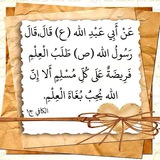 عَنْ أَبِي عَبْدِ الله (ع) قَالَ،قَالَ
رَسُولُ الله (ص) طَلَبُ الْعِلْمِ
فَرِيضَةٌ عَلَى كُلِّ مُسْلِمٍ أَلَا إِنَّ
الله يُحِبُّ بُغَاةَ الْعِلْمِ.
الكافي ج١